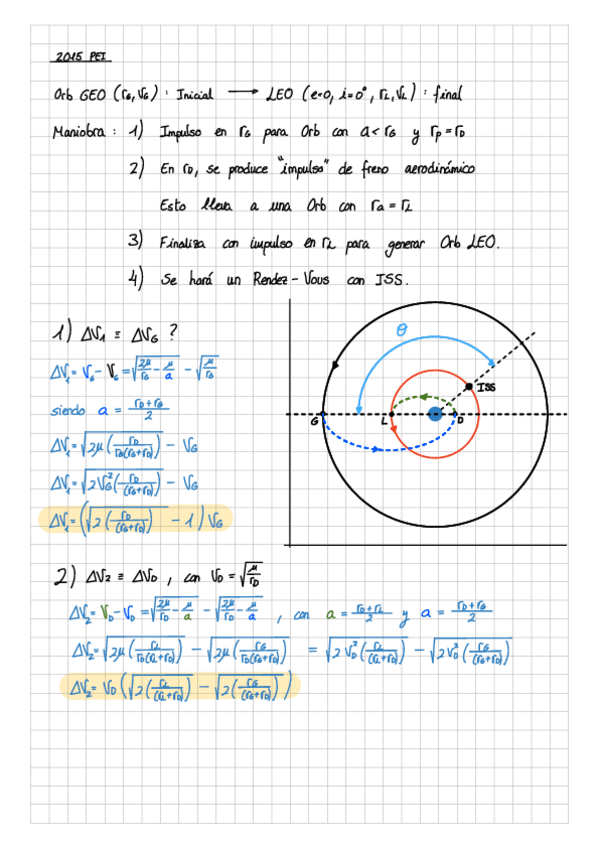 2015 PEI
Orb GEO (r_G, V_G) : Inicial → LEO (e=0, i=0°, r_L, V_L) : final
Maniobra : 1) Impulso en r_G para Orb con a < r_G y r_p = r_D
2) En r_D, se produce "impulso" de freno aerodinámico
Esto lleva a una Orb con r_a = r_L
3) Finaliza con impulso en r_L para generar Orb LEO.
4) Se hará un Rendez-Vous con ISS.
1) ΔV_1 ≡ ΔV_G ?
ΔV_1 = V_G - V_G = √(2μ/r_G - μ/a) - √(μ/r_G)
siendo a = (r_D + r_G)/2
ΔV_1 = √(2μ (r_D/(r_G(r_G+r_D)))) - V_G
ΔV_1 = √(2V_G² (r_D/(r_G+r_D))) - V_G
ΔV_1 = (√(2 (r_D/(r_G+r_D))) - 1) V_G
θ
ISS
G
L
D
2) ΔV_2 ≡ ΔV_D , con V_D = √(μ/r_D)
ΔV_2 = V_D - V_D = √(2μ/r_D - μ/a) - √(2μ/r_D - μ/a) , con a = (r_D + r_L)/2 y a = (r_D + r_G)/2
ΔV_2 = √(2μ (r_L/(r_D(r_L+r_D)))) - √(2μ (r_G/(r_D(r_G+r_D)))) = √(2V_D² (r_L/(r_L+r_D))) - √(2V_D² (r_G/(r_G+r_D)))
ΔV_2 = V_D (√(2 (r_L/(r_L+r_D))) - √(2 (r_G/(r_G+r_D))))